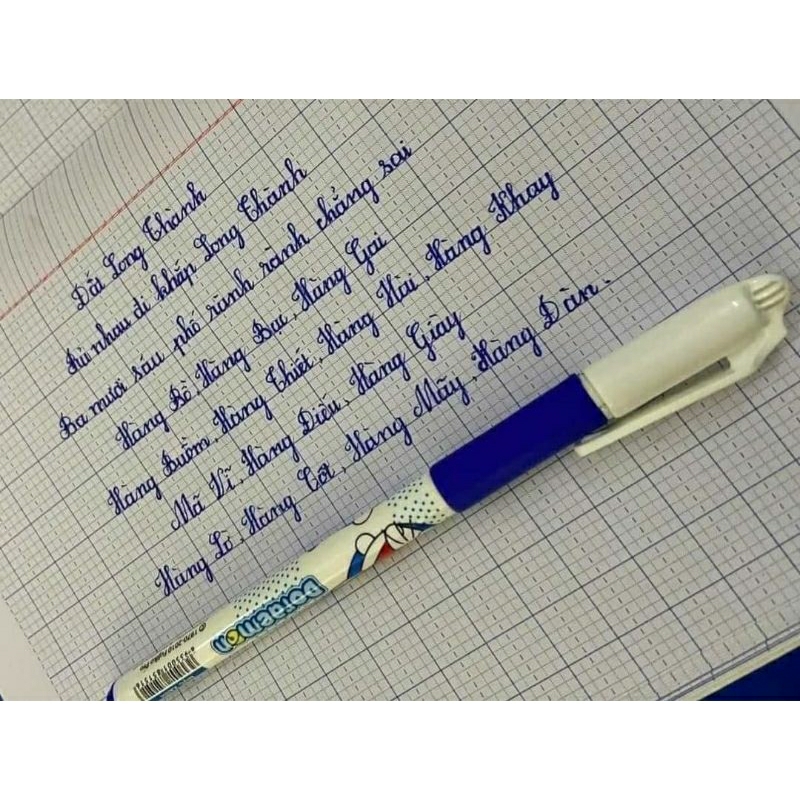 Đất Long Thành
Rủ nhau đi khắp Long Thành
Ba mươi sáu phố rành rành chẳng sai
Hàng Bồ, Hàng Bạc, Hàng Gai
Hàng Buồm, Hàng Thiếc, Hàng Hài, Hàng Khay
Mã Vĩ, Hàng Điếu, Hàng Giày
Hàng Lờ, Hàng Cót, Hàng Mây, Hàng Đàn.
Doraemon